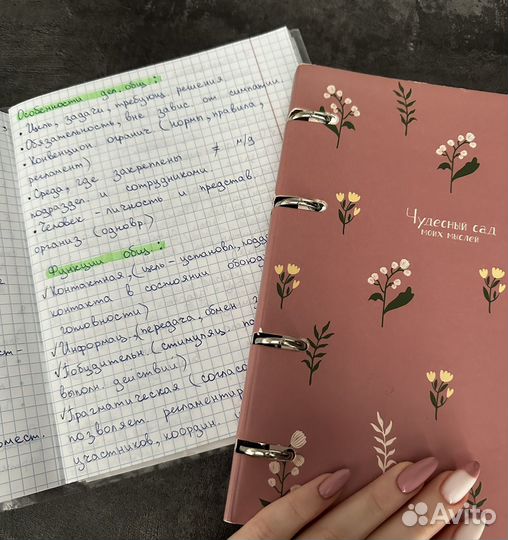 Особенности дел. общ.:
• Цель, задачи, требующ. решения
• Обязательность, вне завис. от симпатии.
• Конвенцион. огранич. (нормы, правила,
регламент)
• Среда, где закреплены ≠ м/д
подраздел. и сотрудниками
• Человек – личность и представ.
организ. (одновр.)
Функции общ.:
✓ Контактная (цель – установл.
контакта в состоянии обоюд
готовности)
✓ Информац. (передача, обмен
✓ Побудительн. (стимуляц.
выполн. действий)
✓ Прагматическая (согласо
позволяет регламентир
участников, координ.
ст-
вмест.
Чудесный сад
моих мыслей
Avito